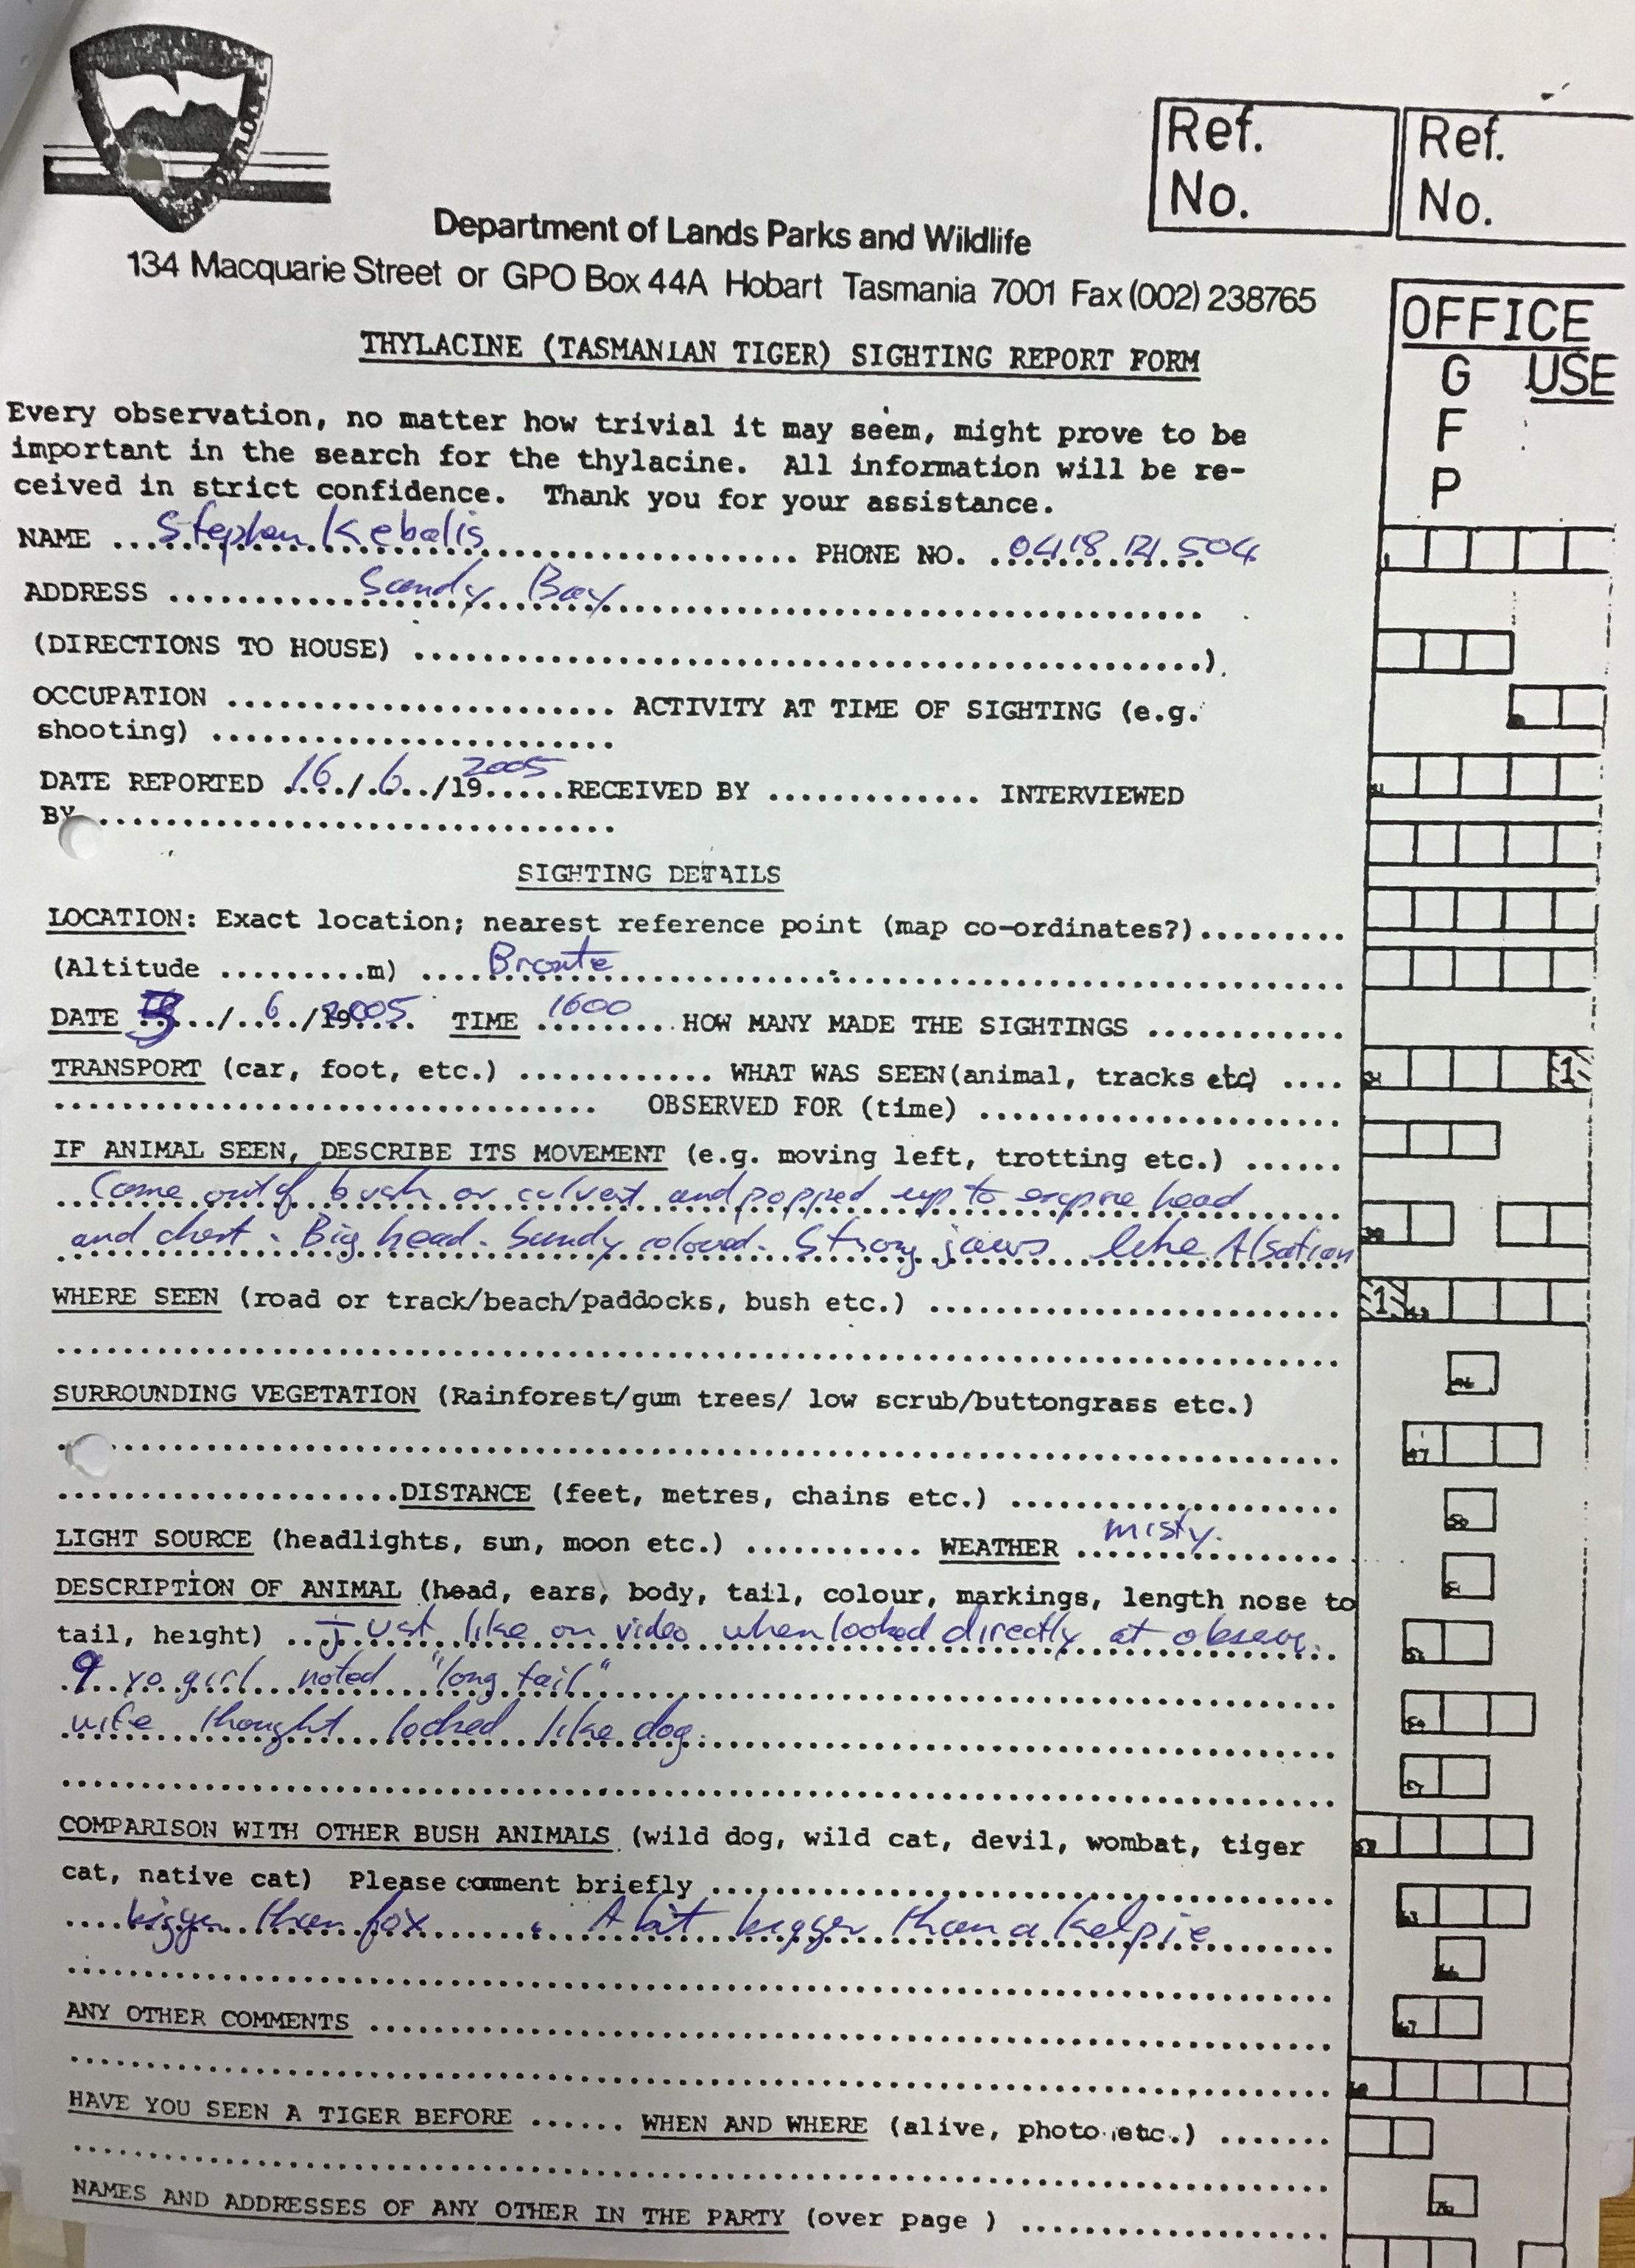 Ref.
No.
Ref.
No.
Department of Lands Parks and Wildlife
134 Macquarie Street or GPO Box 44A Hobart Tasmania 7001 Fax (002) 238765
OFFICE
USE
G
F
P
THYLACINE (TASMANIAN TIGER) SIGHTING REPORT FORM
Every observation, no matter how trivial it may seem, might prove to be
important in the search for the thylacine. All information will be re-
ceived in strict confidence. Thank you for your assistance.
NAME ... Stephen Kebalis ... PHONE NO. ... 0418 121 504
ADDRESS ... Sandy Bay ...
(DIRECTIONS TO HOUSE) ...)
OCCUPATION ... ACTIVITY AT TIME OF SIGHTING (e.g.
shooting) ...
DATE REPORTED 16/6/19 2005 RECEIVED BY ... INTERVIEWED
BY ...
SIGHTING DETAILS
LOCATION: Exact location; nearest reference point (map co-ordinates?)...
(Altitude ...m) ... Bronte ...
DATE /6/19 2005 TIME 1600 HOW MANY MADE THE SIGHTINGS ...
TRANSPORT (car, foot, etc.) ... WHAT WAS SEEN (animal, tracks etc) ...
1
... OBSERVED FOR (time) ...
IF ANIMAL SEEN, DESCRIBE ITS MOVEMENT (e.g. moving left, trotting etc.) ...
Came out of bush or culvert and popped up to expose head
and chest. Big head. Sandy coloured. Strong jaws like Alsation
WHERE SEEN (road or track/beach/paddocks, bush etc.) ...
1
SURROUNDING VEGETATION (Rainforest/gum trees/ low scrub/buttongrass etc.)
...DISTANCE (feet, metres, chains etc.) ...
LIGHT SOURCE (headlights, sun, moon etc.) ... WEATHER ... misty.
DESCRIPTION OF ANIMAL (head, ears, body, tail, colour, markings, length nose to
tail, height) ... Just like on video when looked directly at observer.
9 yo girl noted "long tail"
wife thought looked like dog.
COMPARISON WITH OTHER BUSH ANIMALS (wild dog, wild cat, devil, wombat, tiger
cat, native cat) Please comment briefly ...
bigger than fox. A bit bigger than a kelpie
ANY OTHER COMMENTS ...
HAVE YOU SEEN A TIGER BEFORE ...... WHEN AND WHERE (alive, photo etc.) .......
NAMES AND ADDRESSES OF ANY OTHER IN THE PARTY (over page ) ...